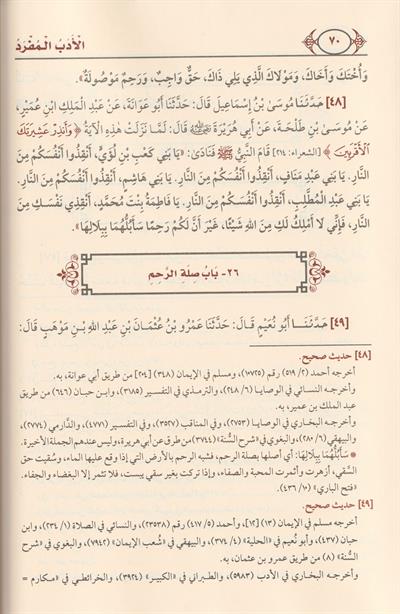 ٧٠
الأَدَبُ الْمُفْرَدُ
وَأُخْتَكَ وَأَخَاكَ، وَمَوْلَاكَ الَّذِي يَلِي ذَاكَ، حَقٌّ وَاجِبٌ، وَرَحِمٌ مَوْصُولَةٌ».
[٤٨] حَدَّثَنَا مُوسَى بْنُ إِسْمَاعِيلَ قَالَ: حَدَّثَنَا أَبُو عَوَانَةَ، عَنْ عَبْدِ الْمَلِكِ ابْنِ عُمَيْرٍ،
عَنْ مُوسَى بْنِ طَلْحَةَ، عَنْ أَبِي هُرَيْرَةَ رضي الله عنه قَالَ: لَمَّا نَزَلَتْ هَذِهِ الْآيَةُ ﴿وَأَنذِرْ عَشِيرَتَكَ
الْأَقْرَبِينَ﴾ [الشعراء: ٢١٤] قَامَ النَّبِيُّ ﷺ فَنَادَىٰ: «يَا بَنِي كَعْبِ بْنِ لُؤَيٍّ، أَنْقِذُوا أَنْفُسَكُمْ مِنَ
النَّارِ. يَا بَنِي عَبْدِ مَنَافٍ، أَنْقِذُوا أَنْفُسَكُمْ مِنَ النَّارِ. يَا بَنِي هَاشِمٍ، أَنْقِذُوا أَنْفُسَكُمْ مِنَ النَّارِ.
يَا بَنِي عَبْدِ الْمُطَّلِبِ، أَنْقِذُوا أَنْفُسَكُمْ مِنَ النَّارِ. يَا فَاطِمَةُ بِنْتَ مُحَمَّدٍ، أَنْقِذِي نَفْسَكِ مِنَ
النَّارِ، فَإِنِّي لَا أَمْلِكُ لَكِ مِنَ اللهِ شَيْئًا، غَيْرَ أَنَّ لَكُمْ رَحِمًا سَأَبُلُّهُمَا بِبِلَالِهَا».
٢٦ - بَابُ صِلَةِ الرَّحِمِ
[٤٩] حَدَّثَنَا أَبُو نُعَيْمٍ قَالَ: حَدَّثَنَا عَمْرُو بْنُ عُثْمَانَ بْنِ عَبْدِ اللهِ بْنِ مَوْهَبٍ قَالَ:
[٤٨] حديث صحيح.
أخرجه أحمد (٢/ ٥١٩) رقم (١٠٧٢٥)، ومسلم في الإيمان (٣٤٨) [٢٠٤] من طريق أبي عوانة، به.
وأخرجه النسائي في الوصايا (٦/ ٢٤٨)، والترمذي في التفسير (٣١٨٥)، وابن حبان (٦٤٦) من طريق
عبد الملك بن عمير، به.
وأخرجه البخاري في الوصايا (٢٧٥٣)، وفي المناقب (٣٥٢٧)، وفي التفسير (٤٧٧١)، والدَّارمي (٢٧٧٤)،
والبيهقي (٦/ ٢٨٠)، والبغوي في «شرح السُّنة» (٣٧٤٤) من طرق عن أبي هريرة، وليس عندهم الجملة الأخيرة.
• سَأَبُلُّهُمَا بِبِلَالِهَا: أي أصلها بصلة الرحم، فشبه الرحم بالأرض التي إذا وقع عليها الماء، وسُقيت حق
السَّقي، أزهرت وأثمرت المحبة والصفاء، وإذا تركت بغير سقي يبست، فلا تثمر إلا البغضاء والجفاء.
«فتح الباري» (١٠/ ٤٣٦).
[٤٩] حديث صحيح.
أخرجه مسلم في الإيمان (١٣) [١٢]، وأحمد (٥/ ٤١٧) رقم (٢٣٥٣٨)، والنسائي في الصلاة (١/ ٢٣٤)، وابن
حبان (٤٣٧)، وأبو نُعيم في «الحلية» (٤/ ٣٧٤)، والبيهقي في «شُعب الإيمان» (٧٩٤٢)، والبغوي في «شرح
السُّنة» (٨) من طريق عمرو بن عثمان، به.
وأخرجه البخاري في الأدب (٥٩٨٣)، والطبراني في «الكبير» (٣٩٢٤)، والخرائطي في «مكارم =